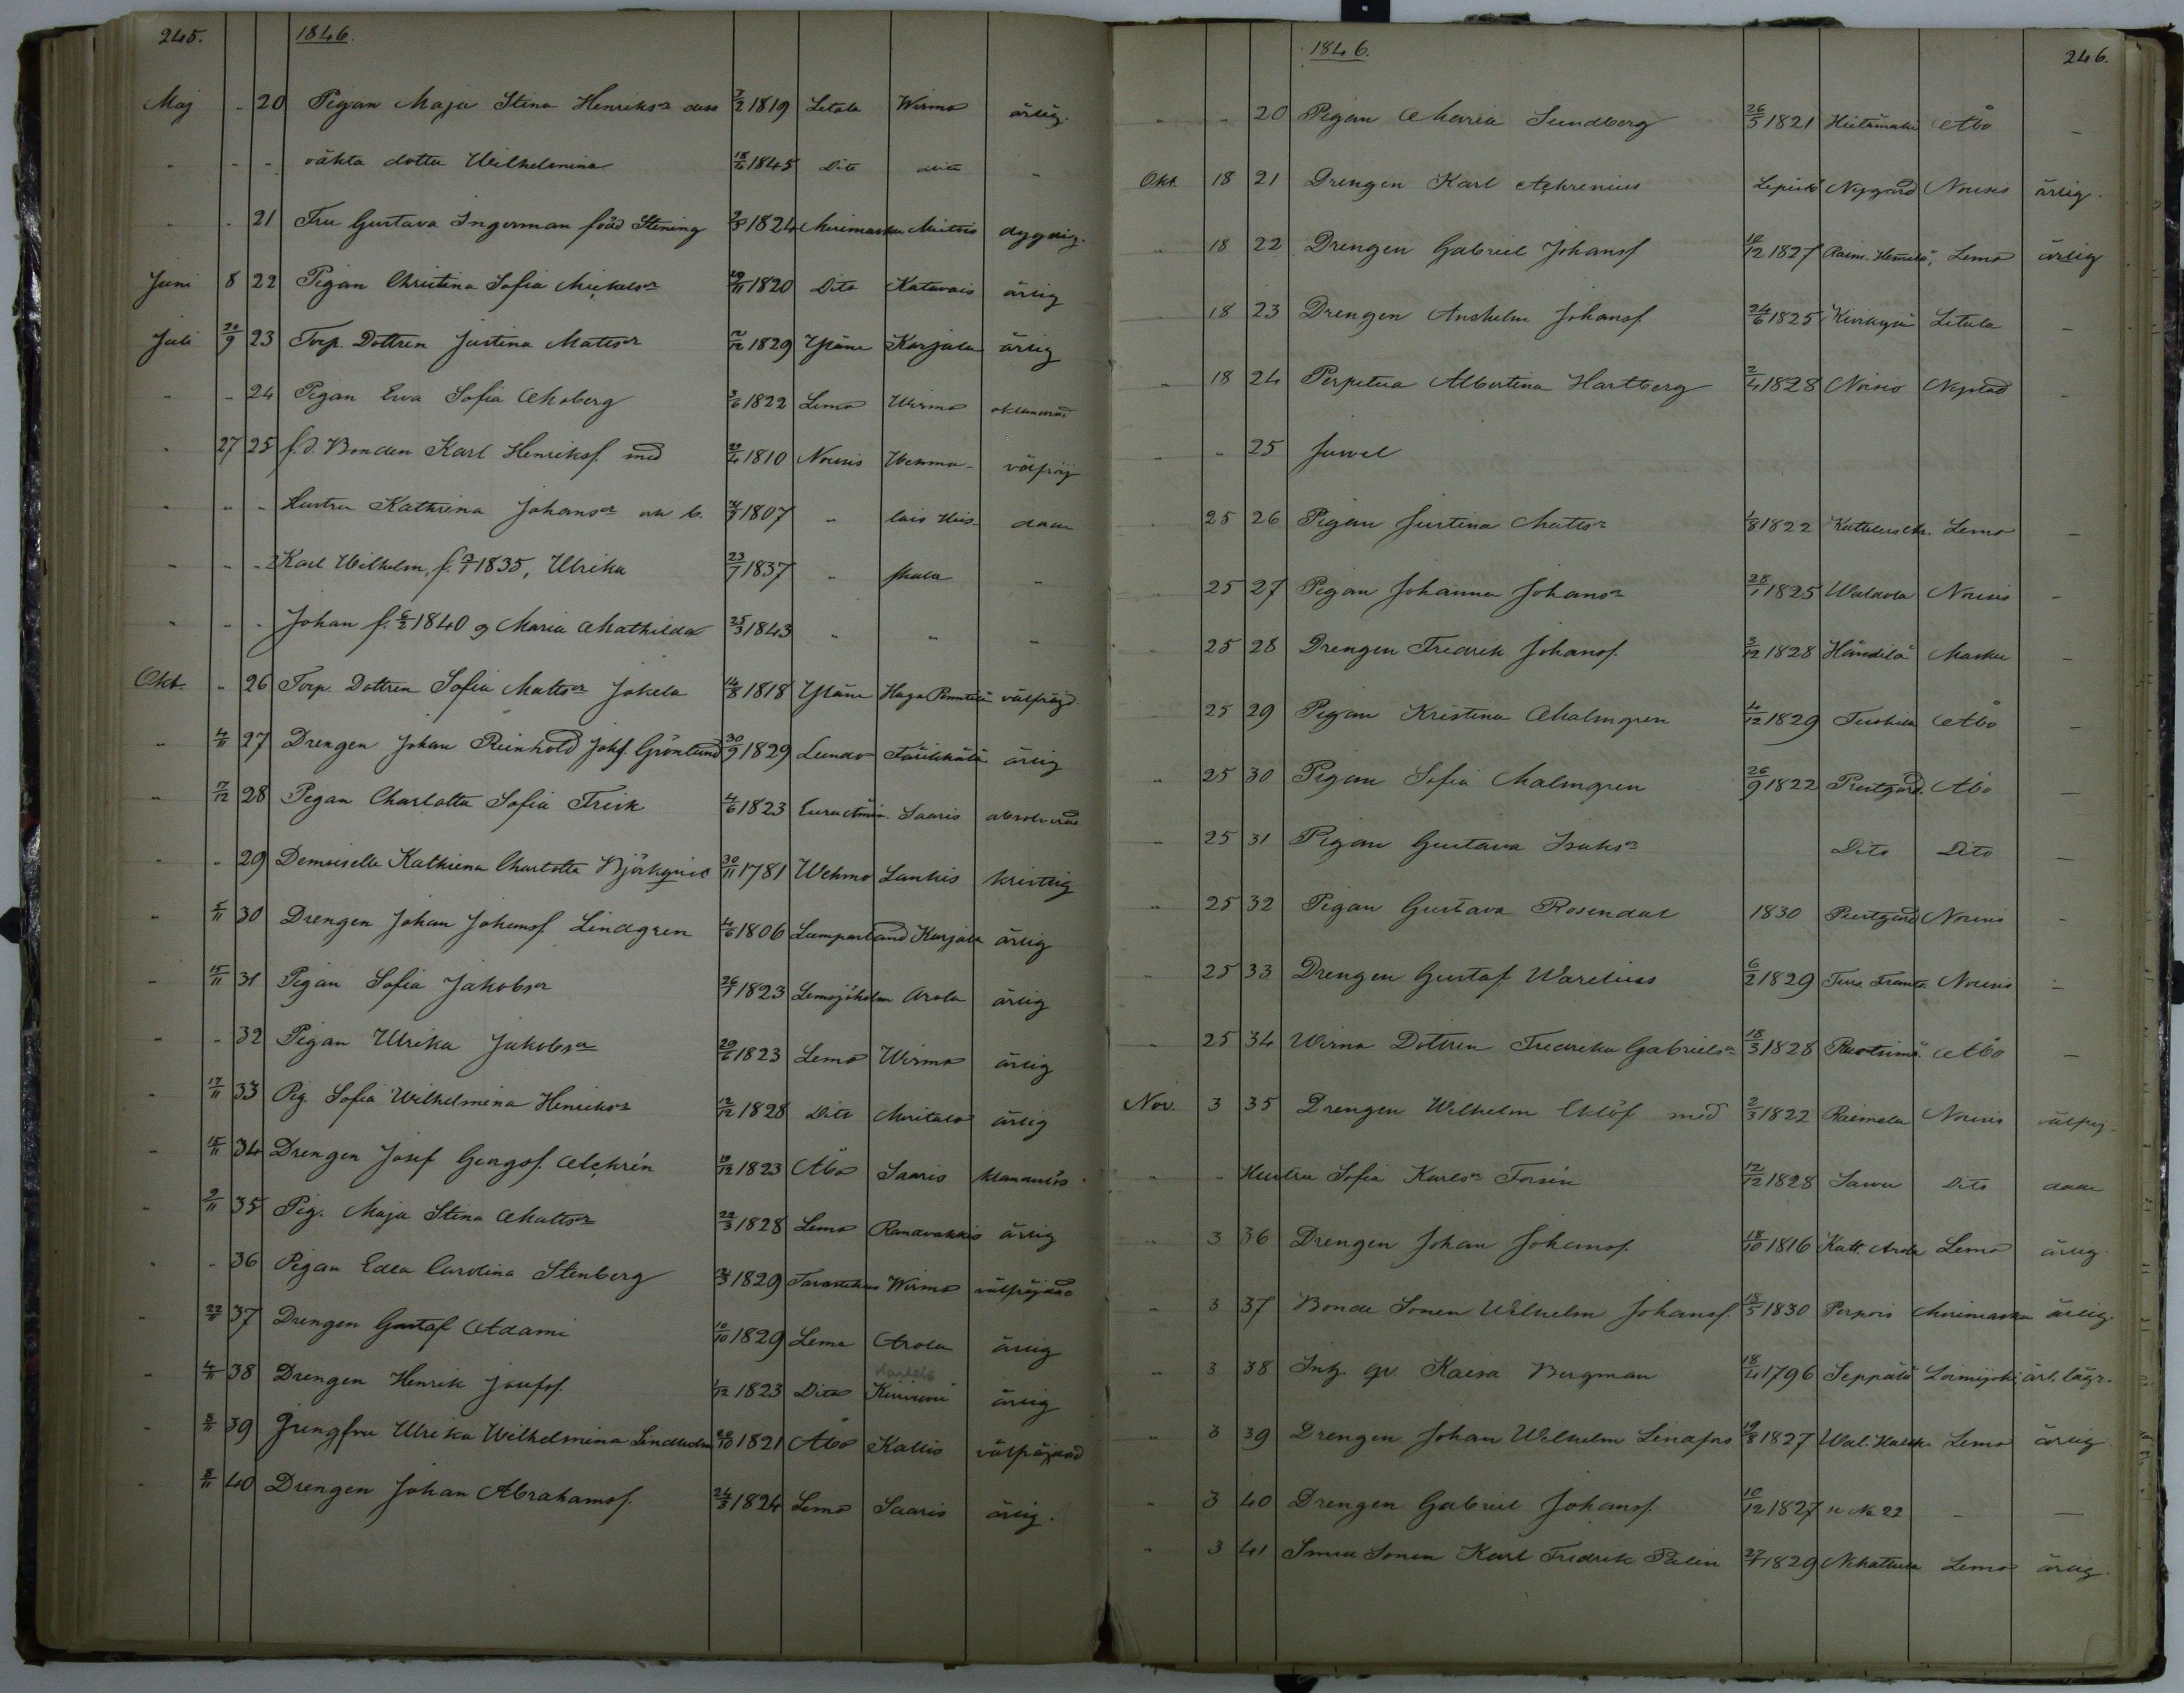 245. 1846.
Maj - 20 Pigan Maja Stina Henriksr dess 7/2 1819 Letala Wirmo ärlig.
- - - oäkta dotter Wilhelmina 18/4 1845 Dito dito -
- - 21 Fru Gustava Ingerman född Stening 1824 dygdig.
Juni 8 22 Pigan Christina Sofia Mickelsr 1820 Dito Katavais ärlig
Juli 20/9 23 Torp. Dottren Justina Mattsr 1829 Yläne Karjala ärlig
- - 24 Pigan Ewa Sofia Ahoberg 3/6 1822 Lemo Wirmo oklanderad
- 27 25 f.d. Bonden Karl Henriksf. med 1810 Nousis Wehmo- välfräj
- - - Hustru Kathrina Johansr och b. 1807 - lais Hus dam
- - - Karl Wilhelm, f. 1835, Ulrika 23/7 1837 - skala -
- - - Johan f. 6/2 1840 o Maria Mathilda 25/3 1843 - - -
Okt. - 26 Torp. Dottren Sofia Mattsr Jokela 14/8 1818 Yläne Haga Penntilä välfräjd
- 4/11 27 Drengen Johan Reinhold Johf. Grönlund 30/9 1829 Lundo ärlig
- 7/12 28 Pigan Charlotta Sofia Frisk 4/6 1823 Saaris absolverad
- - 29 Demoiselle Kathrina Charlotta Björkqvist 30/11 1781 Wehmo Lankis kristlig
- 5/11 30 Drengen Johan Johansf Lindgren 4/6 1806 Lumparland Karjala ärlig
- 15/11 31 Pigan Sofia Jakobsr 26/7 1823 Lemsjöholm Arola ärlig
- - 32 Pigan Ulrika Jakobsr 20/6 1823 Lemo Wirmo ärlig
- 17/11 33 Pig. Sofia Wilhelmina Henriksr 12/12 1828 Dito Moritalo ärlig
- 15/11 34 Drengen Josef Georgsf. Alchrén 10/12 1823 Åbo Saaris klanderlös
- 9/11 35 Pig. Maja Stina Mattsr 22/3 1828 Lemo Ranavakkis ärlig
- - 36 Pigan Edla Carolina Stenberg 1829 Tavastehus Wirmo välfräjdad
- 22/11 37 Drengen Gustaf Adami 10/10 1829 Lemo Arola ärlig
- 4/11 38 Drengen Henrik Josefsf. 1/12 1823 Dito Kiiniemi ärlig
- 8/11 39 Jungfru Ulrika Wilhelmina Lindholm 1821 Åbo Kallis välfräjdad
- 8/11 40 Drengen Johan Abrahamsf. 24/3 1824 Lemo Saaris ärlig.
1846. 246.
- - 20 Pigan Maria Sundberg 26/5 1821 Hietämäki Åbo -
Okt. 18 21 Drengen Karl Achrenius Nygård Nousis ärlig.
- 18 22 Drengen Gabriel Johansf 10/12 1827 Raim. Hemmilä, Lemo ärlig
18 23 Drengen Anshelm Johansf. 24/6 1825 Letala -
- 18 24 Perpetua Albertina Hartberg 2/4 1828 Nousio Nystad -
- - 25 Juvel
25 26 Pigan Justina Mattsr 1/8 1822 Lemo -
25 27 Pigan Johanna Johansr 28/1 1825 Waldola Nousis -
25 28 Drengen Fredrik Johansf. 3/12 1828 Händilä Masku -
25 29 Pigan Kristina Malmgren 4/12 1829 Tuohila Åbo -
- 25 30 Pigan Sofia Malmgren 26/9 1822 Prestgård. Åbo -
- 25 31 Pigan Gustava Isaksr Dito Dito -
- 25 32 Pigan Gustava Rosendal 1830 Prestgård Nousis -
- 25 33 Drengen Gustaf Warelius 6/2 1829 Nousis -
- 25 34 Dottren Fredrika Gabrielsr 18/3 1828 Åbo -
Nov. 3 35 Drengen Wilhelm Eklöf med 2/3 1822 Raimela Nousis välfrej
- - Hustru Sofia Karlsr Forsén 12/12 1828 Dito dam
- 3 36 Drengen Johan Johansf. 18/10 1816 Katt. Arola Lemo ärlig
- 3 37 Bonde Sonen Wilhelm Johansf. 18/5 1830 Perpois Merimasku ärlig.
- 3 38 Inh. qv. Kaisa Bergman 18/4 1796 Seppälä Loimijoki
- 3 39 Drengen Johan Wilhelm Linafors 19/8 1827 Lemo ärlig
- 3 40 Drengen Gabriel Johansf. 10/12 1827 No 22 - -
- 3 41 Sonen Karl Fredrik Palin 27/7 1829 Lemo ärlig.